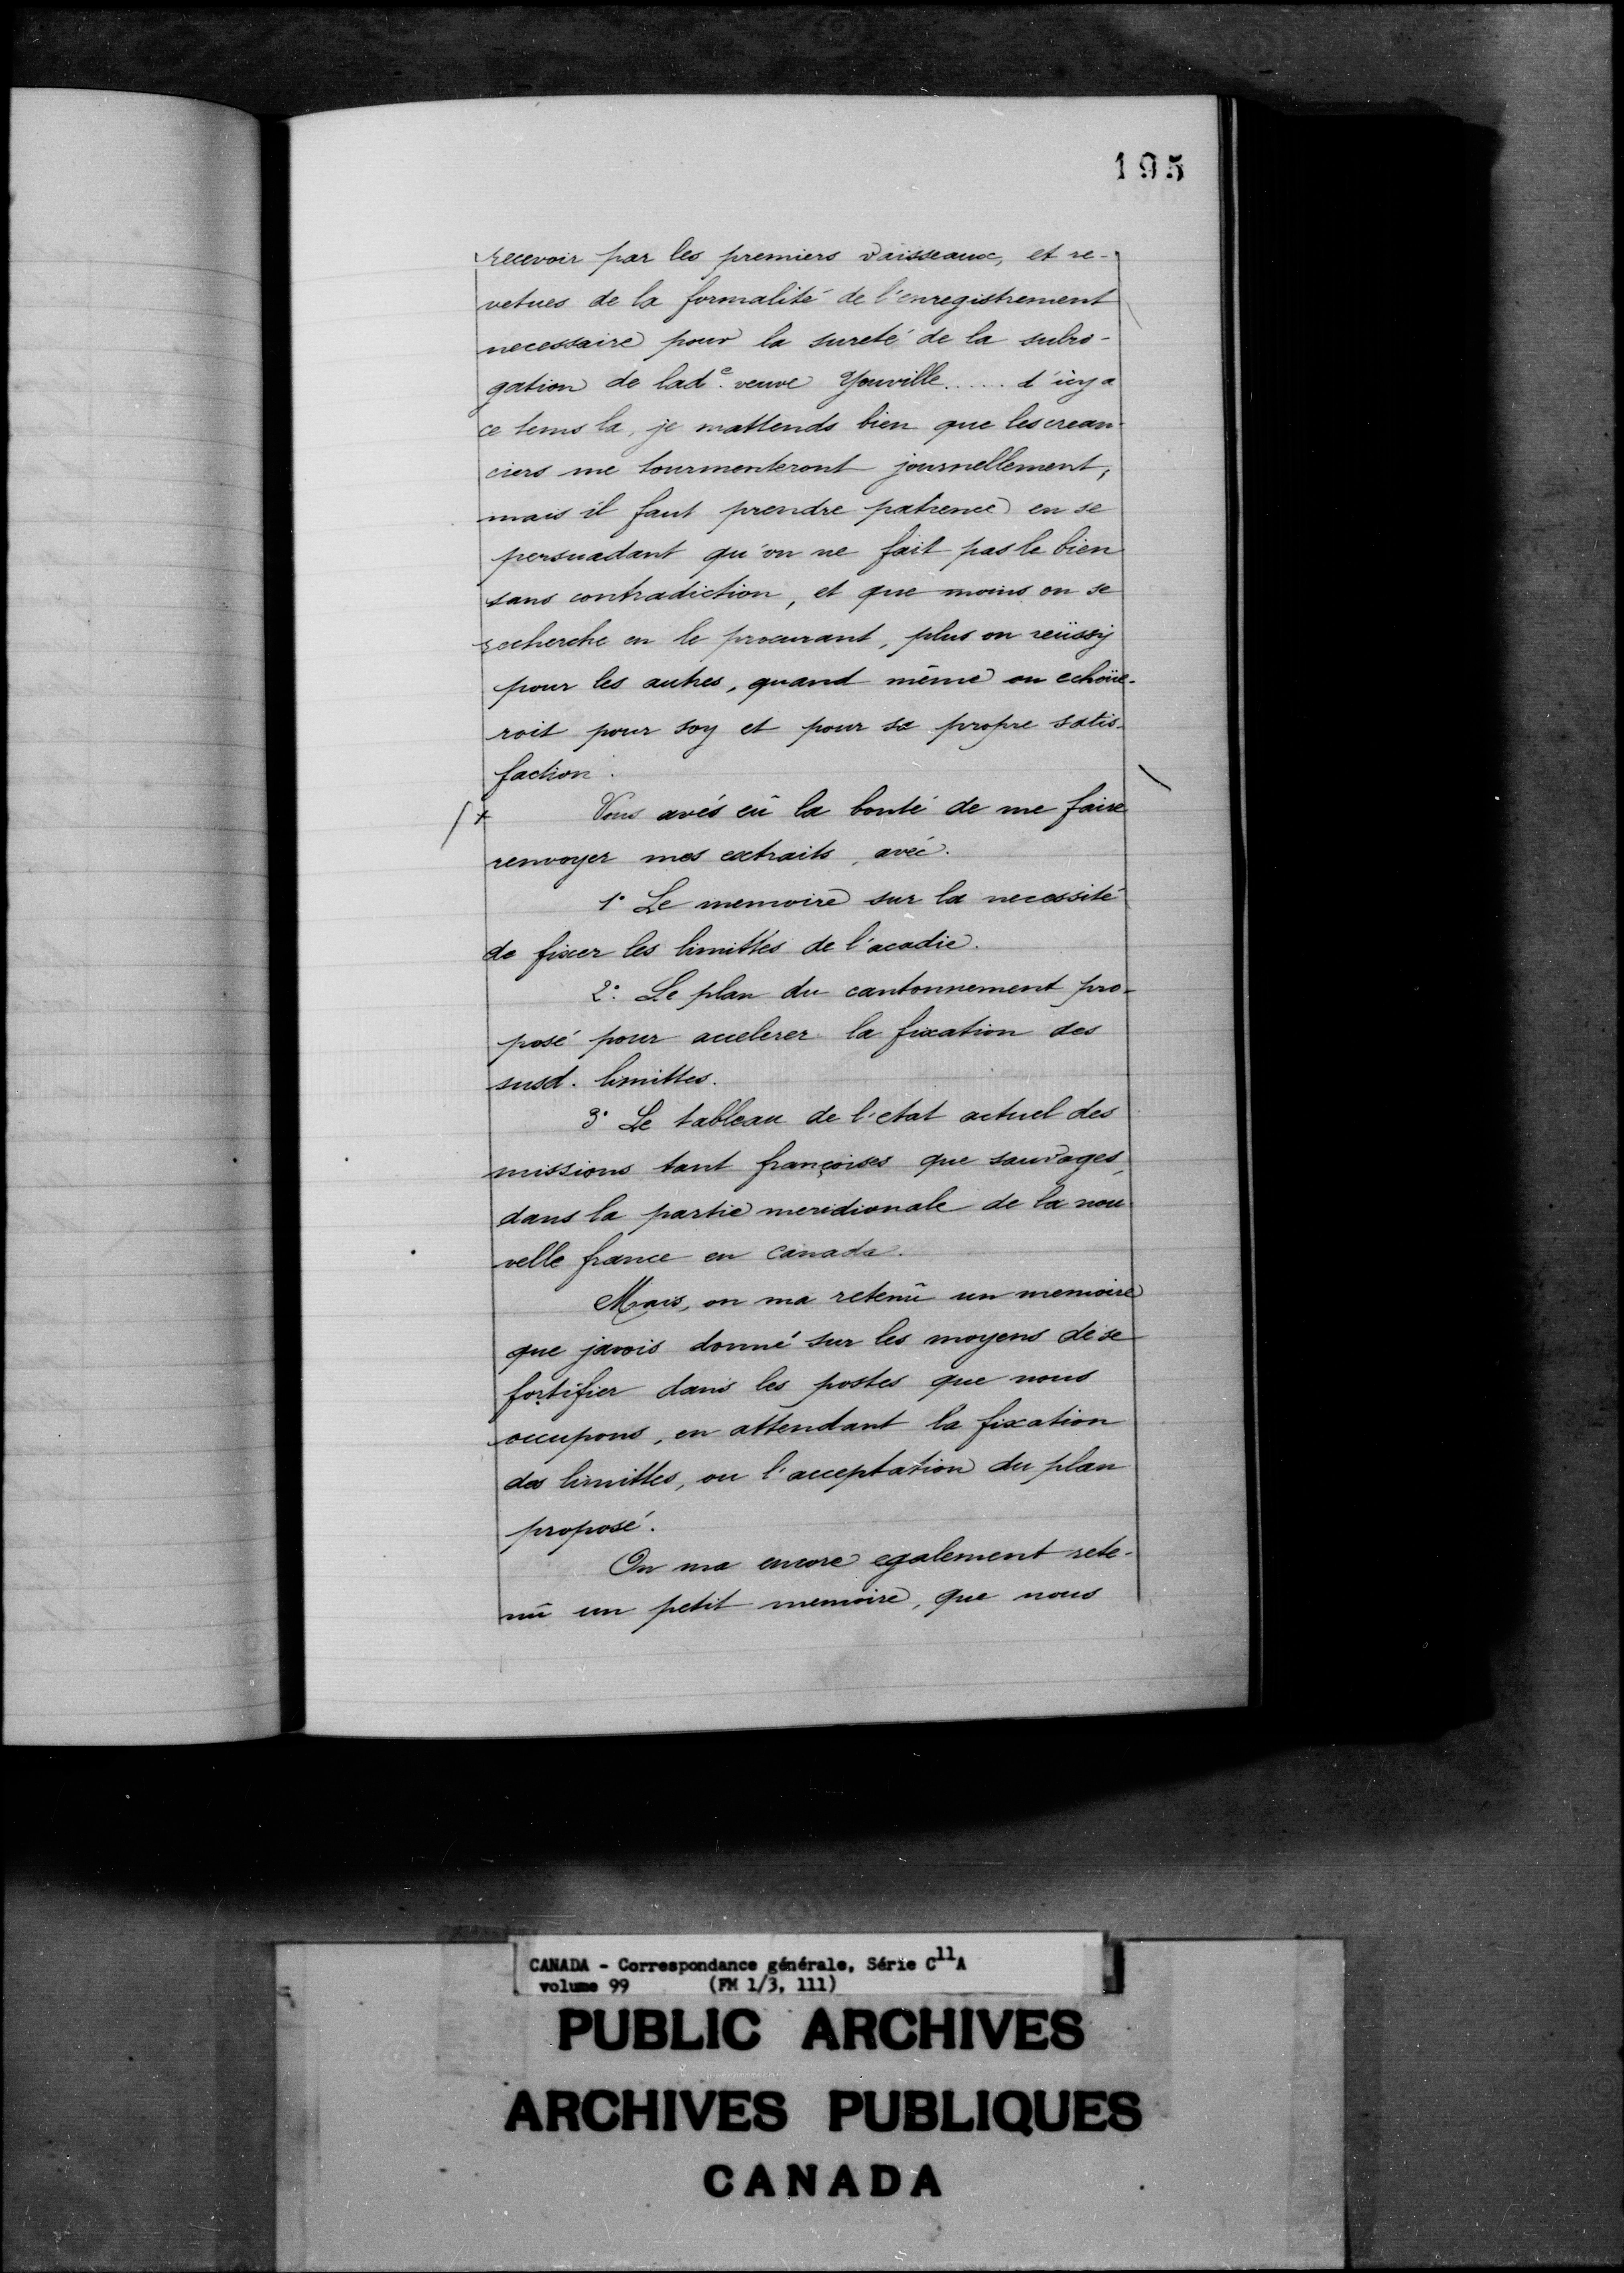 195
recevoir par les premiers vaisseaux, et re-
vetues de la formalité de l'enregistrement
necessaire pour la sureté de la subro-
gation de lade. veuve Youville..... d'icy a
ce tems la, je mattends bien que les crean-
ciers me tourmenteront journellement,
mais il faut prendre patience en se
persuadant qu'on ne fait pas le bien
sans contradiction, et que moins on se
recherche en le procurant, plus on reüssy
pour les autres, quand même on echoüe-
roit pour soy et pour sa propre satis-
faction.
Vous avés eû la bonté de me faire
renvoyer mes extraits, avec.
1° Le memoire sur la necessité
de fixer les limittes de l'acadie.
2°. Le plan du cantonnement pro-
posé pour accelerer la fixation des
susd. limittes.
3° Le tableau de l'etat actuel des
missions tant françoises que sauvages,
dans la partie meridionale de la nou-
velle france en Canada.
Mais, on ma retenû un memoire
que javois donné sur les moyens de se
fortifier dans les postes que nous
occupons, en attendant la fixation
des limittes, ou l'acceptation du plan
proposé.
On ma encore egalement rete-
nû un petit memoire, que nous
CANADA - Correspondance générale, Série C11A
volume 99 (FM 1/3, 111)
PUBLIC ARCHIVES
ARCHIVES PUBLIQUES
CANADA